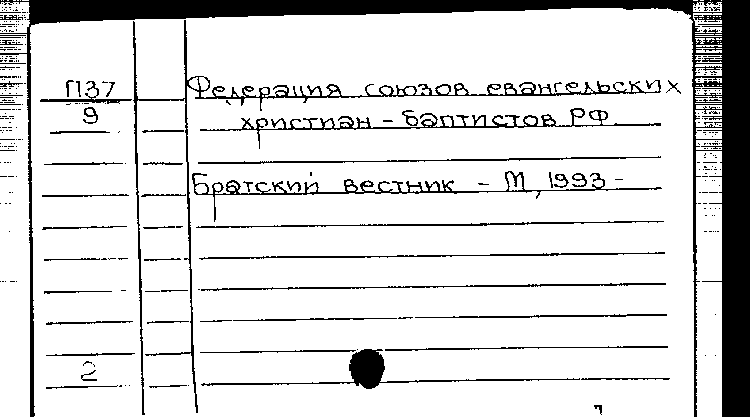 П37 Федерация союзов евангельских
9 христиан - баптистов РФ
Братский вестник - М, 1993 -
2